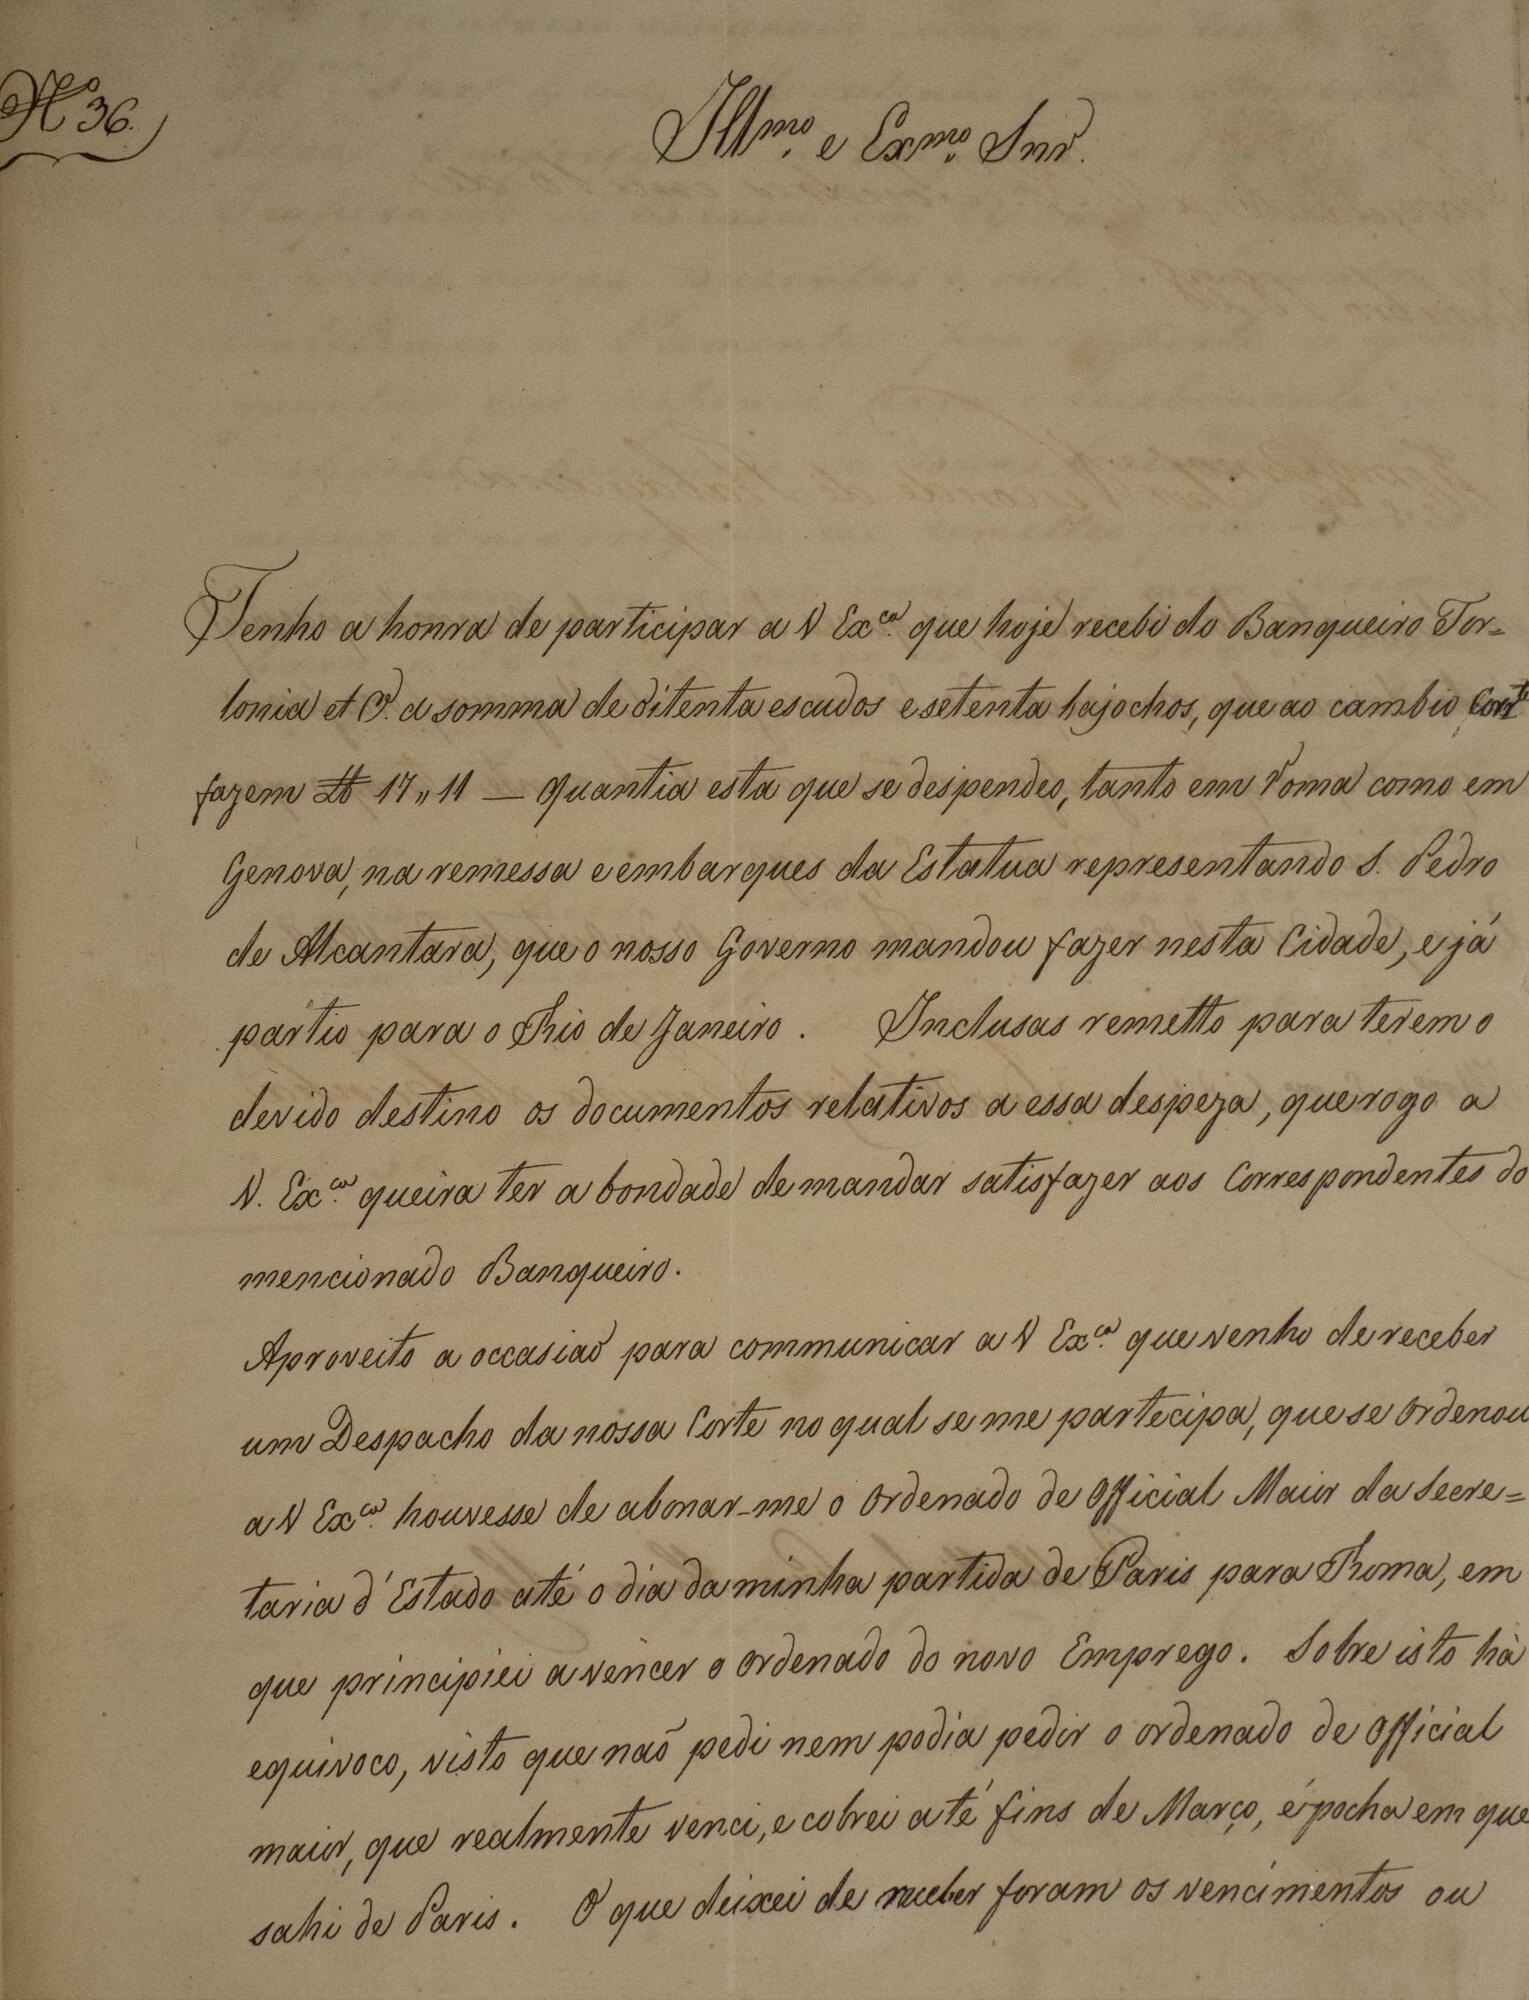 Nº 36.
Illmo. e Exmo. Snr.
Tenho a honra de participar a V Exca. que hoje recebi do Banqueiro Tor=
lonia et Ca. a somma de oitenta escudos e setenta bajochos, que ao cambio Corrte
fazem 17,,11 — quantia esta que se despendeo, tanto em Roma como em
Genova, na remessa e embarques da Estatua representando S. Pedro
de Alcantara, que o nosso Governo mandou fazer nesta Cidade, e já
partio para o Rio de Janeiro. Inclusas remetto para terem o
devido destino os documentos relativos a essa despeza, que rogo a
V. Exca. queira ter a bondade de mandar satisfazer aos Correspondentes do
mencionado Banqueiro.
Aproveito a occasiaõ para communicar a V Exca. que venho de receber
um Despacho da nossa Corte no qual se me partecipa, que se ordenou
a V Exca. houvesse de abonar-me o ordenado de Official Maior da Secre=
taria d'Estado até o dia da minha partida de Paris para Roma, em
que principiei a vencer o ordenado do novo Emprego. Sobre isto hà
equivoco, visto que naõ pedi nem podia pedir o ordenado de Official
maior, que realmente venci, e cobrei até fins de Março, épocha em que
sahi de Paris. O que deixei de receber foram os vencimentos ou